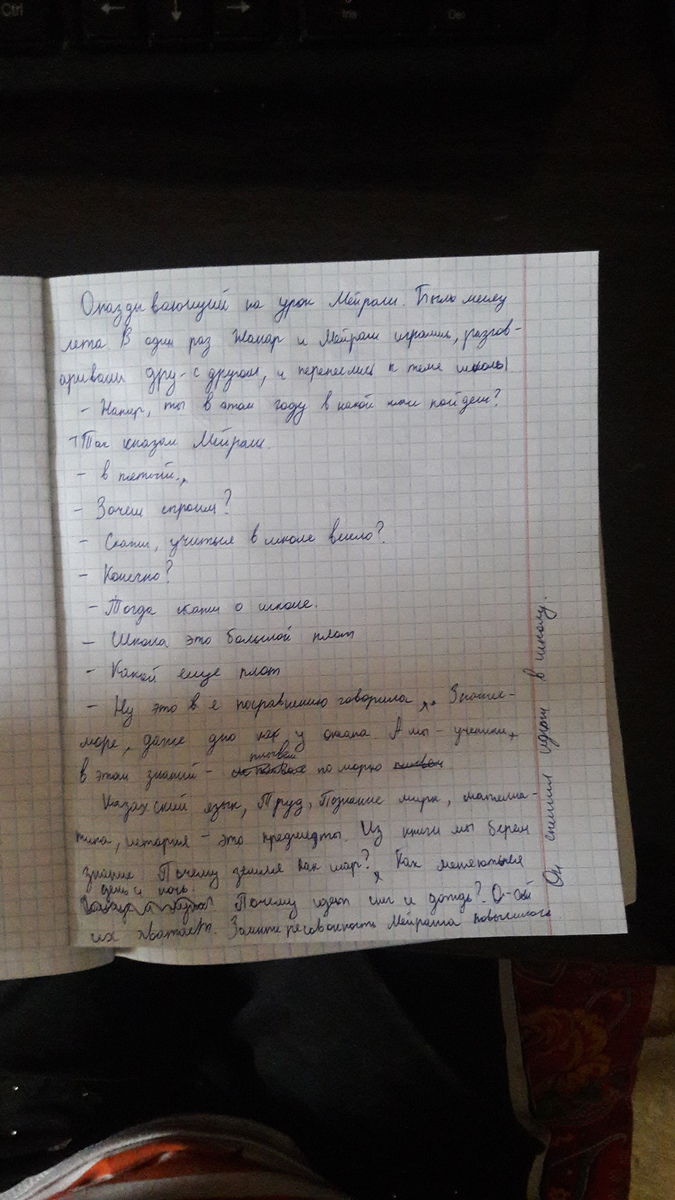 Опаздывающий на урок Мейрам. Было
лета В один раз Жанар и Мейрам играли, разгов-
аривали дру- с другом, и перенеслись к теме школы
- ты в этом году в какой пойдеш?
Так сказал Мейрам.
- в пятый.
- Зачем спросил?
- Скажи, учиться в школе весело?
- Конечно?
- Тогда скажи о школе.
- Школа это большой плот
- Какой еще плот
- Ну это в я посравнению говорила Знание-
море, даже дно как у океана А мы - ученики,
плывем
в этом знаний - по морю
Казахский язык, Труд, Познание мира, матема-
тика, история - это предмедты. Из книги мы берем
знание Почему земля как шар? Как меняються
день и ночь.
Почему идют и дождь? О-ой
их хватает. Мейрама повысилась
Он спешил идют в школу.